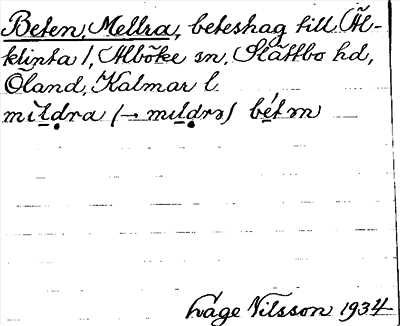 Beten, Mellra, beteshag till Äl-
klinta 1, Alböke sn, Slättbo hd,
Öland, Kalmar l.
mıḷdra (→ mıḷdrə) bét m
Låge Nilsson 1934